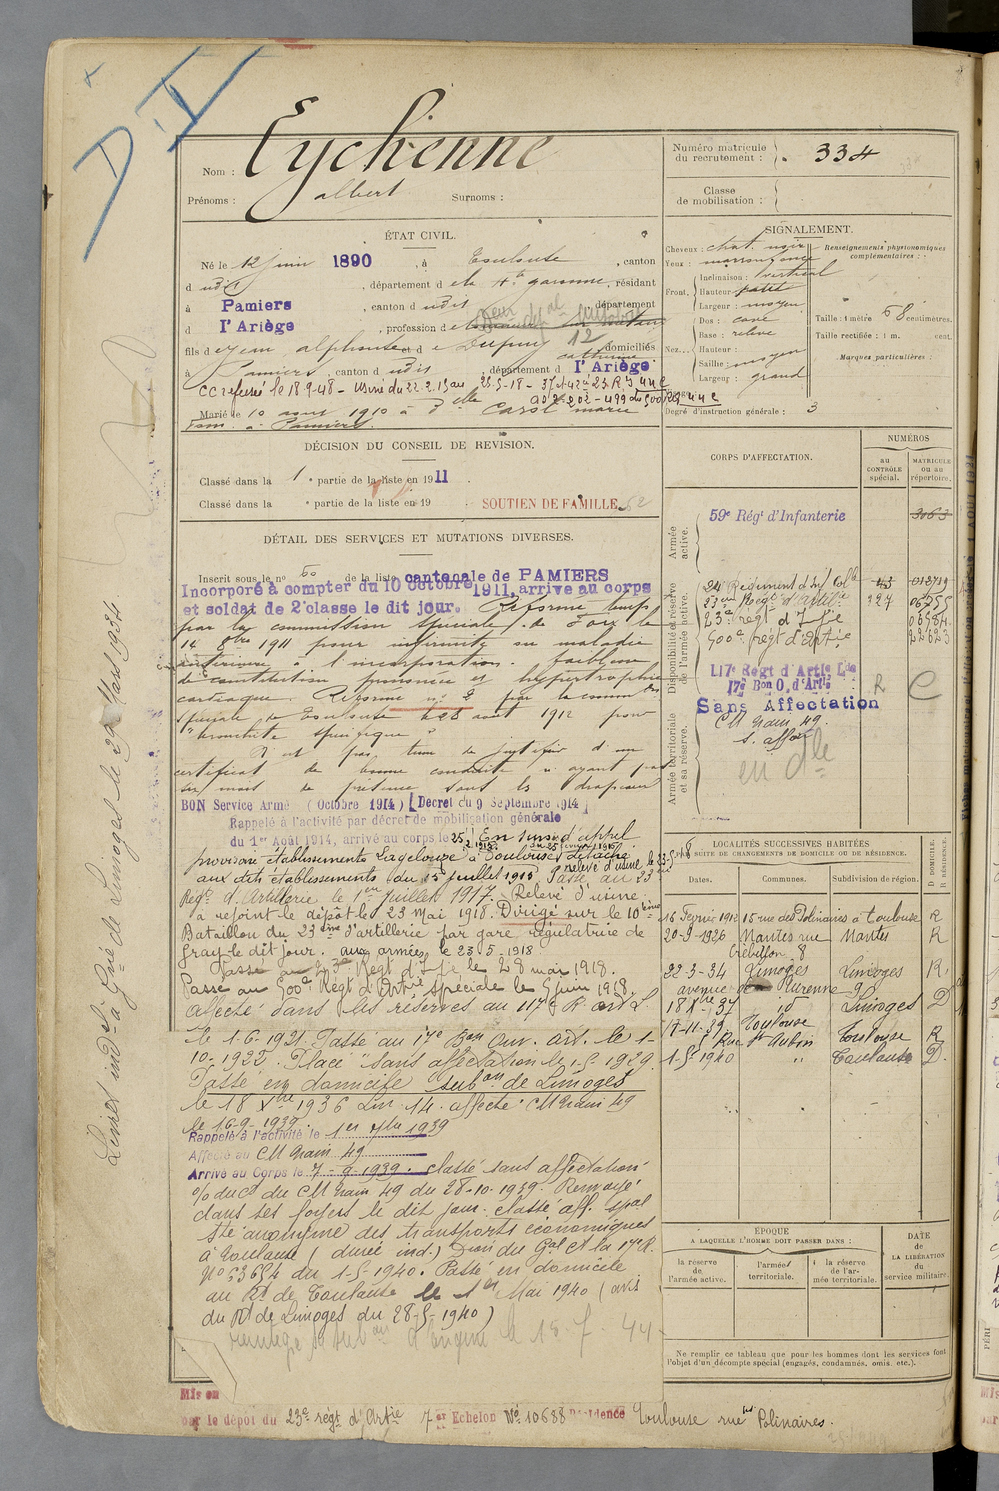 D I
Eychenne
Nom :
Prénoms : albert Surnoms :
ÉTAT CIVIL.
Né le 12 juin 1890, à Toulouse, canton
d udit, département d e la Hte garonne, résidant
à Pamiers, canton d udit, département
d l'Ariège, profession d e
fils d e jean alphonse et d e Dupuy catherine domiciliés 12
à Pamiers, canton d udit, département d l'Ariège
Marié le 10 aout 1910 à dlle Carol marie
dom. à Pamiers.
DÉCISION DU CONSEIL DE RÉVISION.
Classé dans la 1 e partie de la liste en 1911.
Classé dans la e partie de la liste en 19 . SOUTIEN DE FAMILLE
DÉTAIL DES SERVICES ET MUTATIONS DIVERSES.
Inscrit sous le n° 60 de la liste cantonale de PAMIERS
Incorporé à compter du 10 octobre 1911, arrive au corps
et soldat de 2e classe le dit jour. Réformé temp.
par la commission spéciale de Foix le
14 8bre 1911 pour infirmité ou maladie
antérieure à l'incorporation. faiblesse
de constitution prononcée et hypertrophie
cardiaque Réformé n° 2 par la common
spéciale de Toulouse le 28 août 1912 pour
"bronchite spécifique"
N'est pas tenu de justifier d'un
certificat de bonne conduite n'ayant pas
six mois de présence sous les drapeaux
BON Service Armé (Octobre 1914) [Décret du 9 Septembre 1914]
Rappelé à l'activité par décret de mobilisation générale
du 1er Août 1914, arrivé au corps le 25.2.1915. En sursis d'appel
provisoire établissements Lagelouze à Toulouse détaché
aux dits établissements du 15 juillet 1915 relevé d'usine le 23-5-18
Passé au 23me
Régt d'Artillerie le 1er juillet 1917. Relevé d'usine
a rejoint le dépôt le 23 mai 1918. Dirigé sur le 10ème
Bataillon du 23ème d'artillerie par gare régulatrice de
Gray le dit jour. aux armées le 23-5-1918
Passé au 23e Régt d'Ife le 28 mai 1918.
Passé au 500e Régt d'Artie spéciale le 5 juin 1918.
affecté dans les réserves au 117e R. art L.
le 1-6-1921. Passé au 17e Bon ouv. art. le 1-
10-1922. Placé "sans affectation" le 1-5-1929.
Passé en domicile subon de Limoges
le 18 Xbre 1936 Lim. 14. affecté CM Train 49
le 16-9-1939.
Rappelé à l'activité le 1er 7bre 1939
Affecté au CM Train 49
Arrivé au Corps le 7-9-1939. classé sans affectation
o/o du Ct du CM Train 49 du 28-10-1939. Renvoyé
dans ses foyers le dit jour. classé aff. spal
Sté anonyme des transports économiques
à Toulouse (durée ind.) Don du Gal Ct la 17e R.
N° 53654 du 1-5-1940. Passé en domicile
au Rt de Toulouse le 1er Mai 1940 (avis
du Rt de Limoges du 28-5-1940)
Mis en
par le dépôt du 23e régt d'Artie 7er Echelon N° 10688 Résidence Toulouse rue des Polinaires.
Numéro matricule
du recrutement : 334
Classe
de mobilisation :
SIGNALEMENT.
Cheveux : chat. noir
Yeux : marron foncé
Front, Inclinaison : vertical
Hauteur : petit
Largeur : moyen
Nez... Dos : cave
Base : relevé
Hauteur :
Saillie : moyen
Largeur : grand
Renseignements physionomiques
complémentaires :
Taille : 1 mètre 68 centimètres.
Taille rectifiée : 1 m. cent.
Marques particulières :
Degré d'instruction générale : 3
CORPS D'AFFECTATION.
NUMÉROS
au
CONTRÔLE
spécial.
MATRICULE
ou au
répertoire.
Armée
active.
59e Régt d'Infanterie 3063
Disponibilité et réserve
de l'armée active.
24e Régiment d'Inf Colle 43 012719
23ème Régt d'Artie 227 06755
23e régt d'Ife 06584
500e régt d'Artie 22623
117e Régt d'Artie Lde
17e Bon O. d'Artie R C
Sans Affectation
Armée territoriale
et sa réserve.
CM Train 49.
s. affon
en dle
LOCALITÉS SUCCESSIVES HABITÉES
PAR SUITE DE CHANGEMENTS DE DOMICILE OU DE RÉSIDENCE.
Dates. Communes. Subdivision de région. D DOMICILE. R RÉSIDENCE.
16 Février 1912 15 rue des Polinaires à Toulouse R
20-9-1926 Nantes rue Crébillon 8 Nantes R
22-3-34 Limoges Limoges R
avenue de Turenne 95
18 Xbre 37 id Limoges D
17-11-39 Toulouse Toulouse R
5 Rue St Aubin
1-5-1940 " Toulouse D.
ÉPOQUE
A LAQUELLE L'HOMME DOIT PASSER DANS :
la réserve
de
l'armée active.
l'armée
territoriale.
la réserve
de l'ar-
mée territoriale.
DATE
de
LA LIBÉRATION
du
service militaire.
Ne remplir ce tableau que pour les hommes dont les services font
l'objet d'un décompte spécial (engagés, condamnés, omis, etc.).